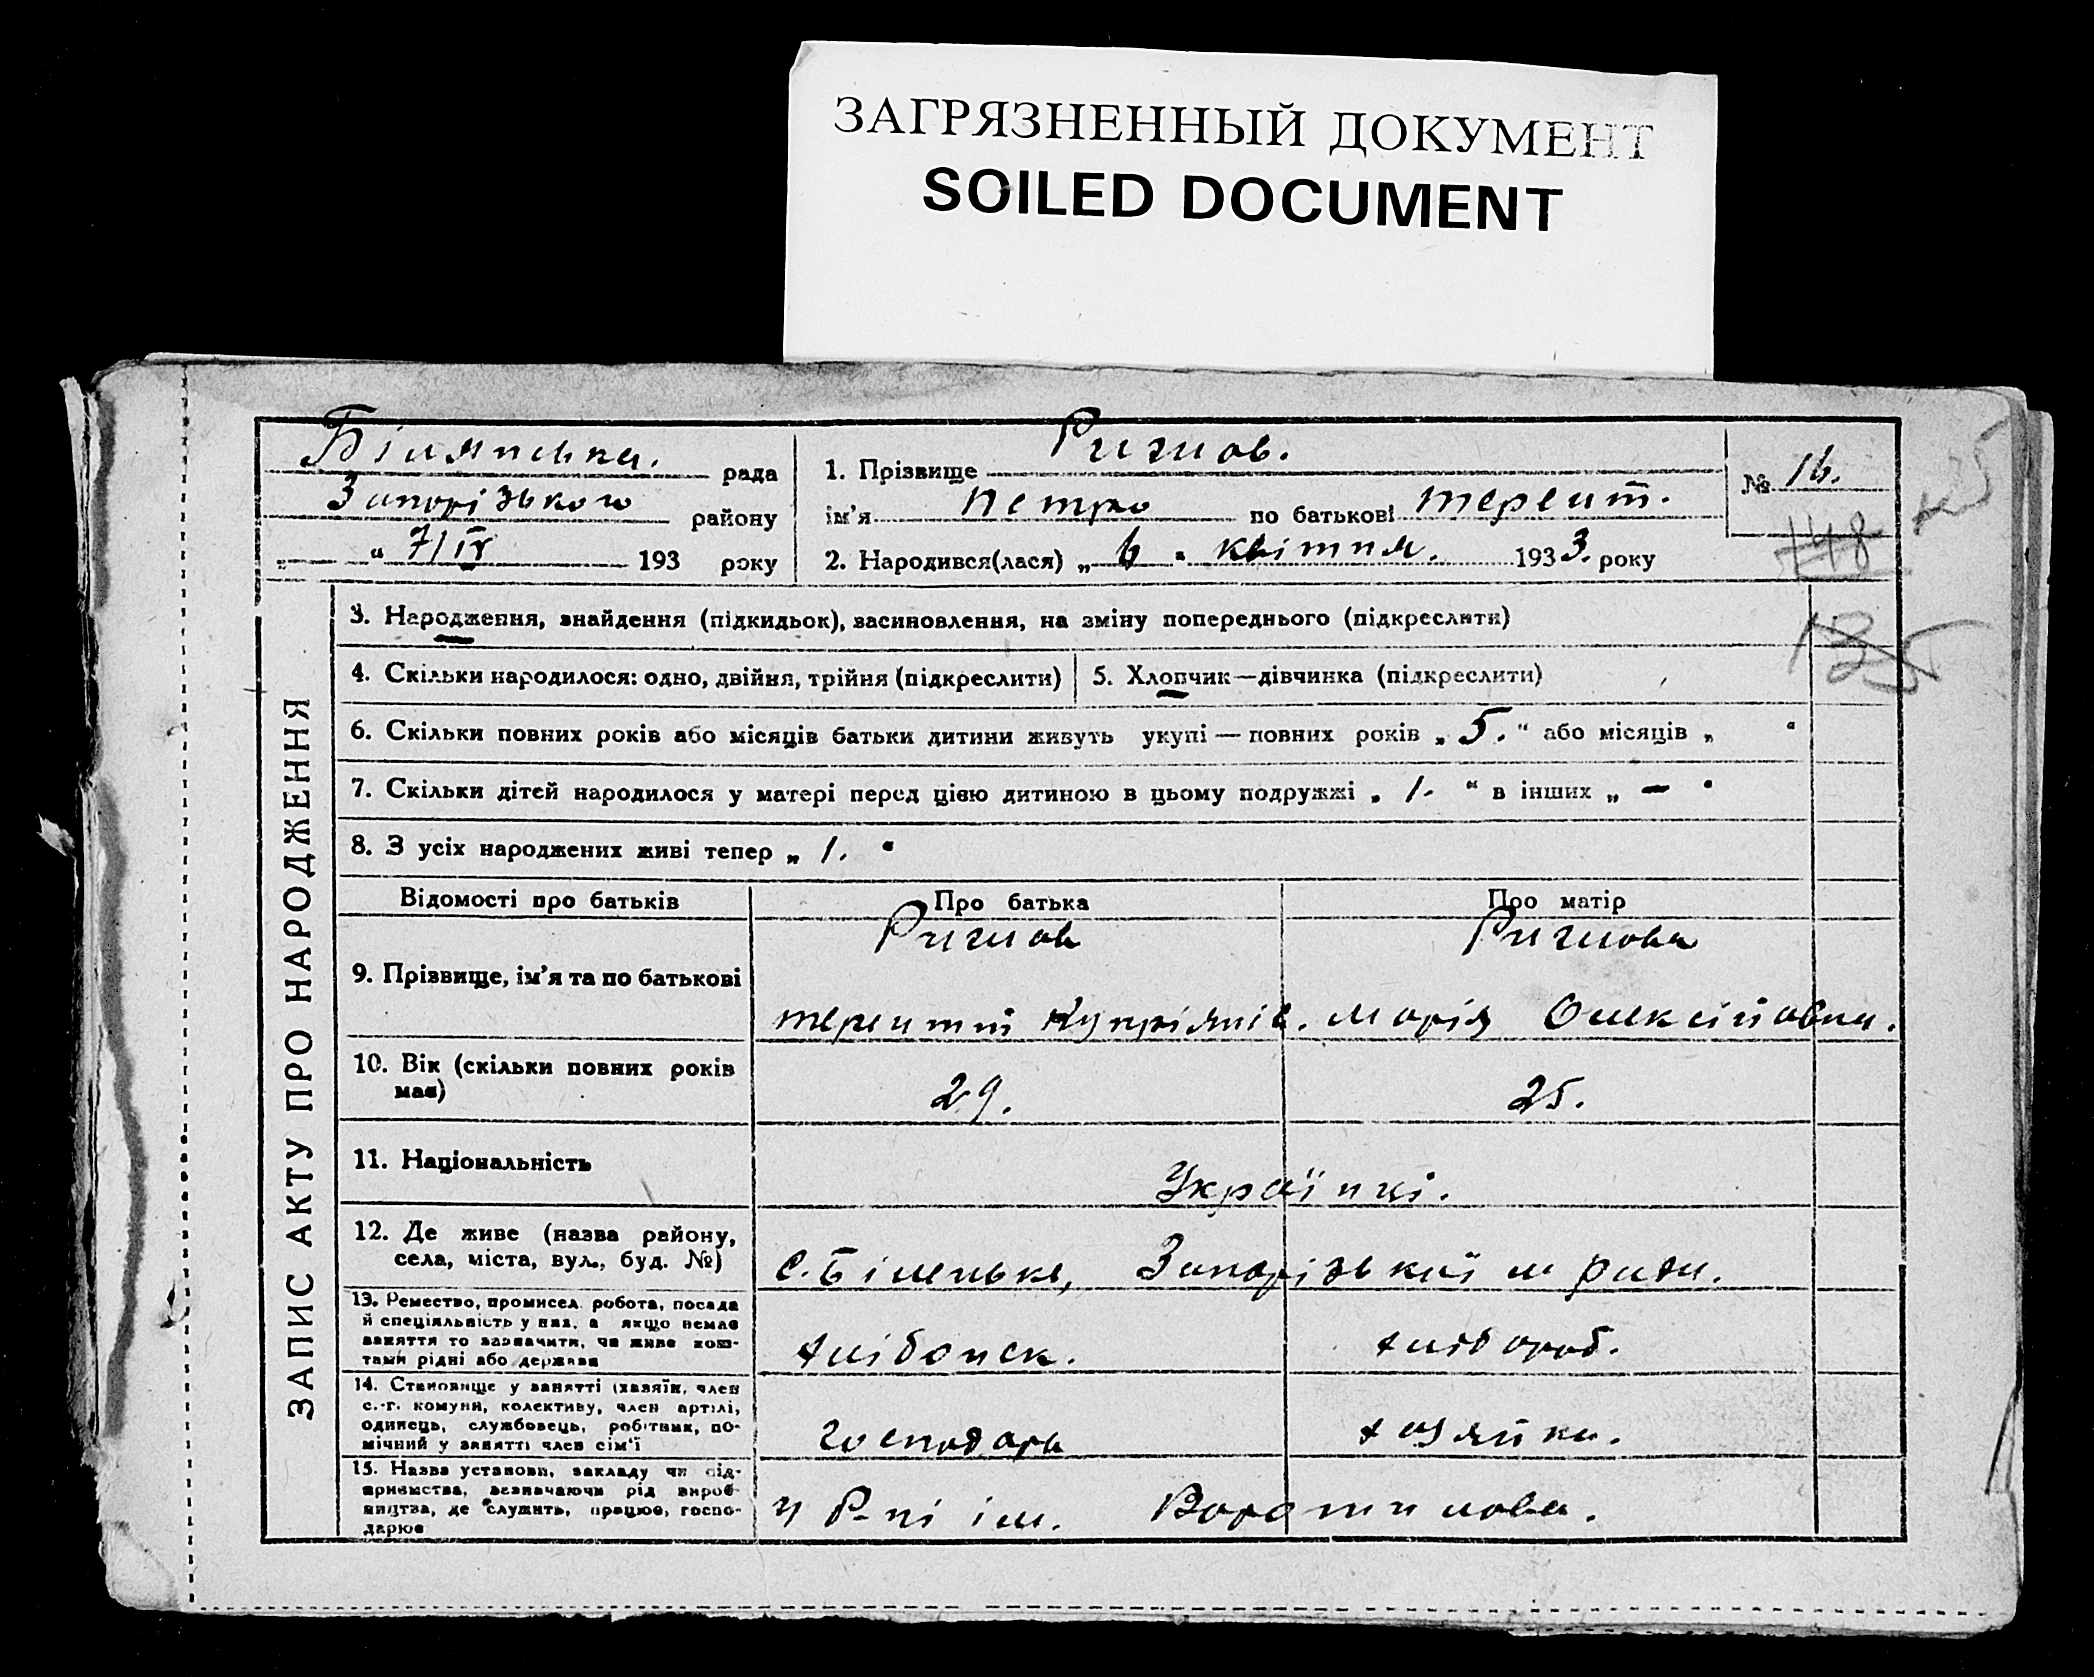 ЗАГРЯЗНЕННЫЙ ДОКУМЕНТ
SOILED DOCUMENT
Білянська. рада
Запорізького району
" 7/IV 193 року
1. Прізвище Ригиов.
ім'я Петро по батькові Терент.
2. Народився(лася) „ 6 " квітня. 1933. року
№ 16.
148
135
ЗАПИС АКТУ ПРО НАРОДЖЕННЯ
3. Народження, знайдення (підкидьок), засиновлення, на зміну попереднього (підкреслити)
4. Скільки народилося: одно, двійня, трійня (підкреслити)
5. Хлопчик—дівчинка (підкреслити)
6. Скільки повних років або місяців батьки дитини живуть укупі — повних років „ 5. " або місяців „ "
7. Скільки дітей народилося у матері перед цією дитиною в цьому подружжі „ 1. " в інших „ — "
8. З усіх народжених живі тепер „ 1. "
Відомості про батьків Про батька Про матір
9. Прізвище, ім'я та по батькові
Терентій Купріянів. Марія Олексійовна.
10. Вік (скільки повних років має)
29. 25.
11. Національність
Українці.
12. Де живе (назва району,
села, міста, вул., буд. №)
с. Біленьке, Запорізький м ради.
13. Ремество, промисел, робота, посада
й спеціяльність у них, а якщо немає
заняття то зазначити, чи живе кош-
тами рідні або держави
хлібопск. хлібороб.
14. Становище у занятті (хазяїн, член
с.-г. комуни, колективу, член артілі,
одинець, службовець, робітник, по-
мічний у занятті член сім'ї
господарь хозяйка.
15. Назва установи, закладу чи під-
приємства, зазначаючи рід вироб-
ництва, де служить, працює, госпо-
дарює
у Р-лі ім. Ворошилова.